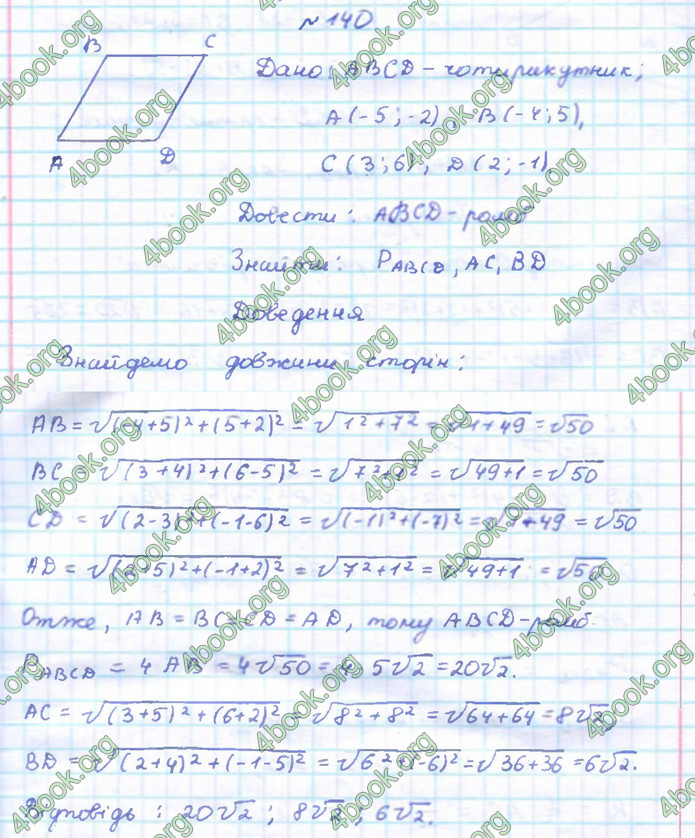 № 140
B C
A D
Дано: ABCD – чотирикутник;
A(-5;-2), B(-4;5),
C(3;6), D(2;-1)
Довести: ABCD – ромб
Знайти: P_ABCD, AC, BD
Доведення
Знайдемо довжини сторін:
AB = √((-4+5)²+(5+2)²) = √(1²+7²) = √(1+49) = √50
BC = √((3+4)²+(6-5)²) = √(7²+1²) = √(49+1) = √50
CD = √((2-3)²+(-1-6)²) = √((-1)²+(-7)²) = √(1+49) = √50
AD = √((2+5)²+(-1+2)²) = √(7²+1²) = √(49+1) = √50
Отже, AB = BC = CD = AD, тому ABCD – ромб.
P_ABCD = 4 AB = 4√50 = 4·5√2 = 20√2.
AC = √((3+5)²+(6+2)²) = √(8²+8²) = √(64+64) = 8√2
BD = √((2+4)²+(-1-5)²) = √(6²+(-6)²) = √(36+36) = 6√2.
Відповідь: 20√2; 8√2; 6√2.
4book.org